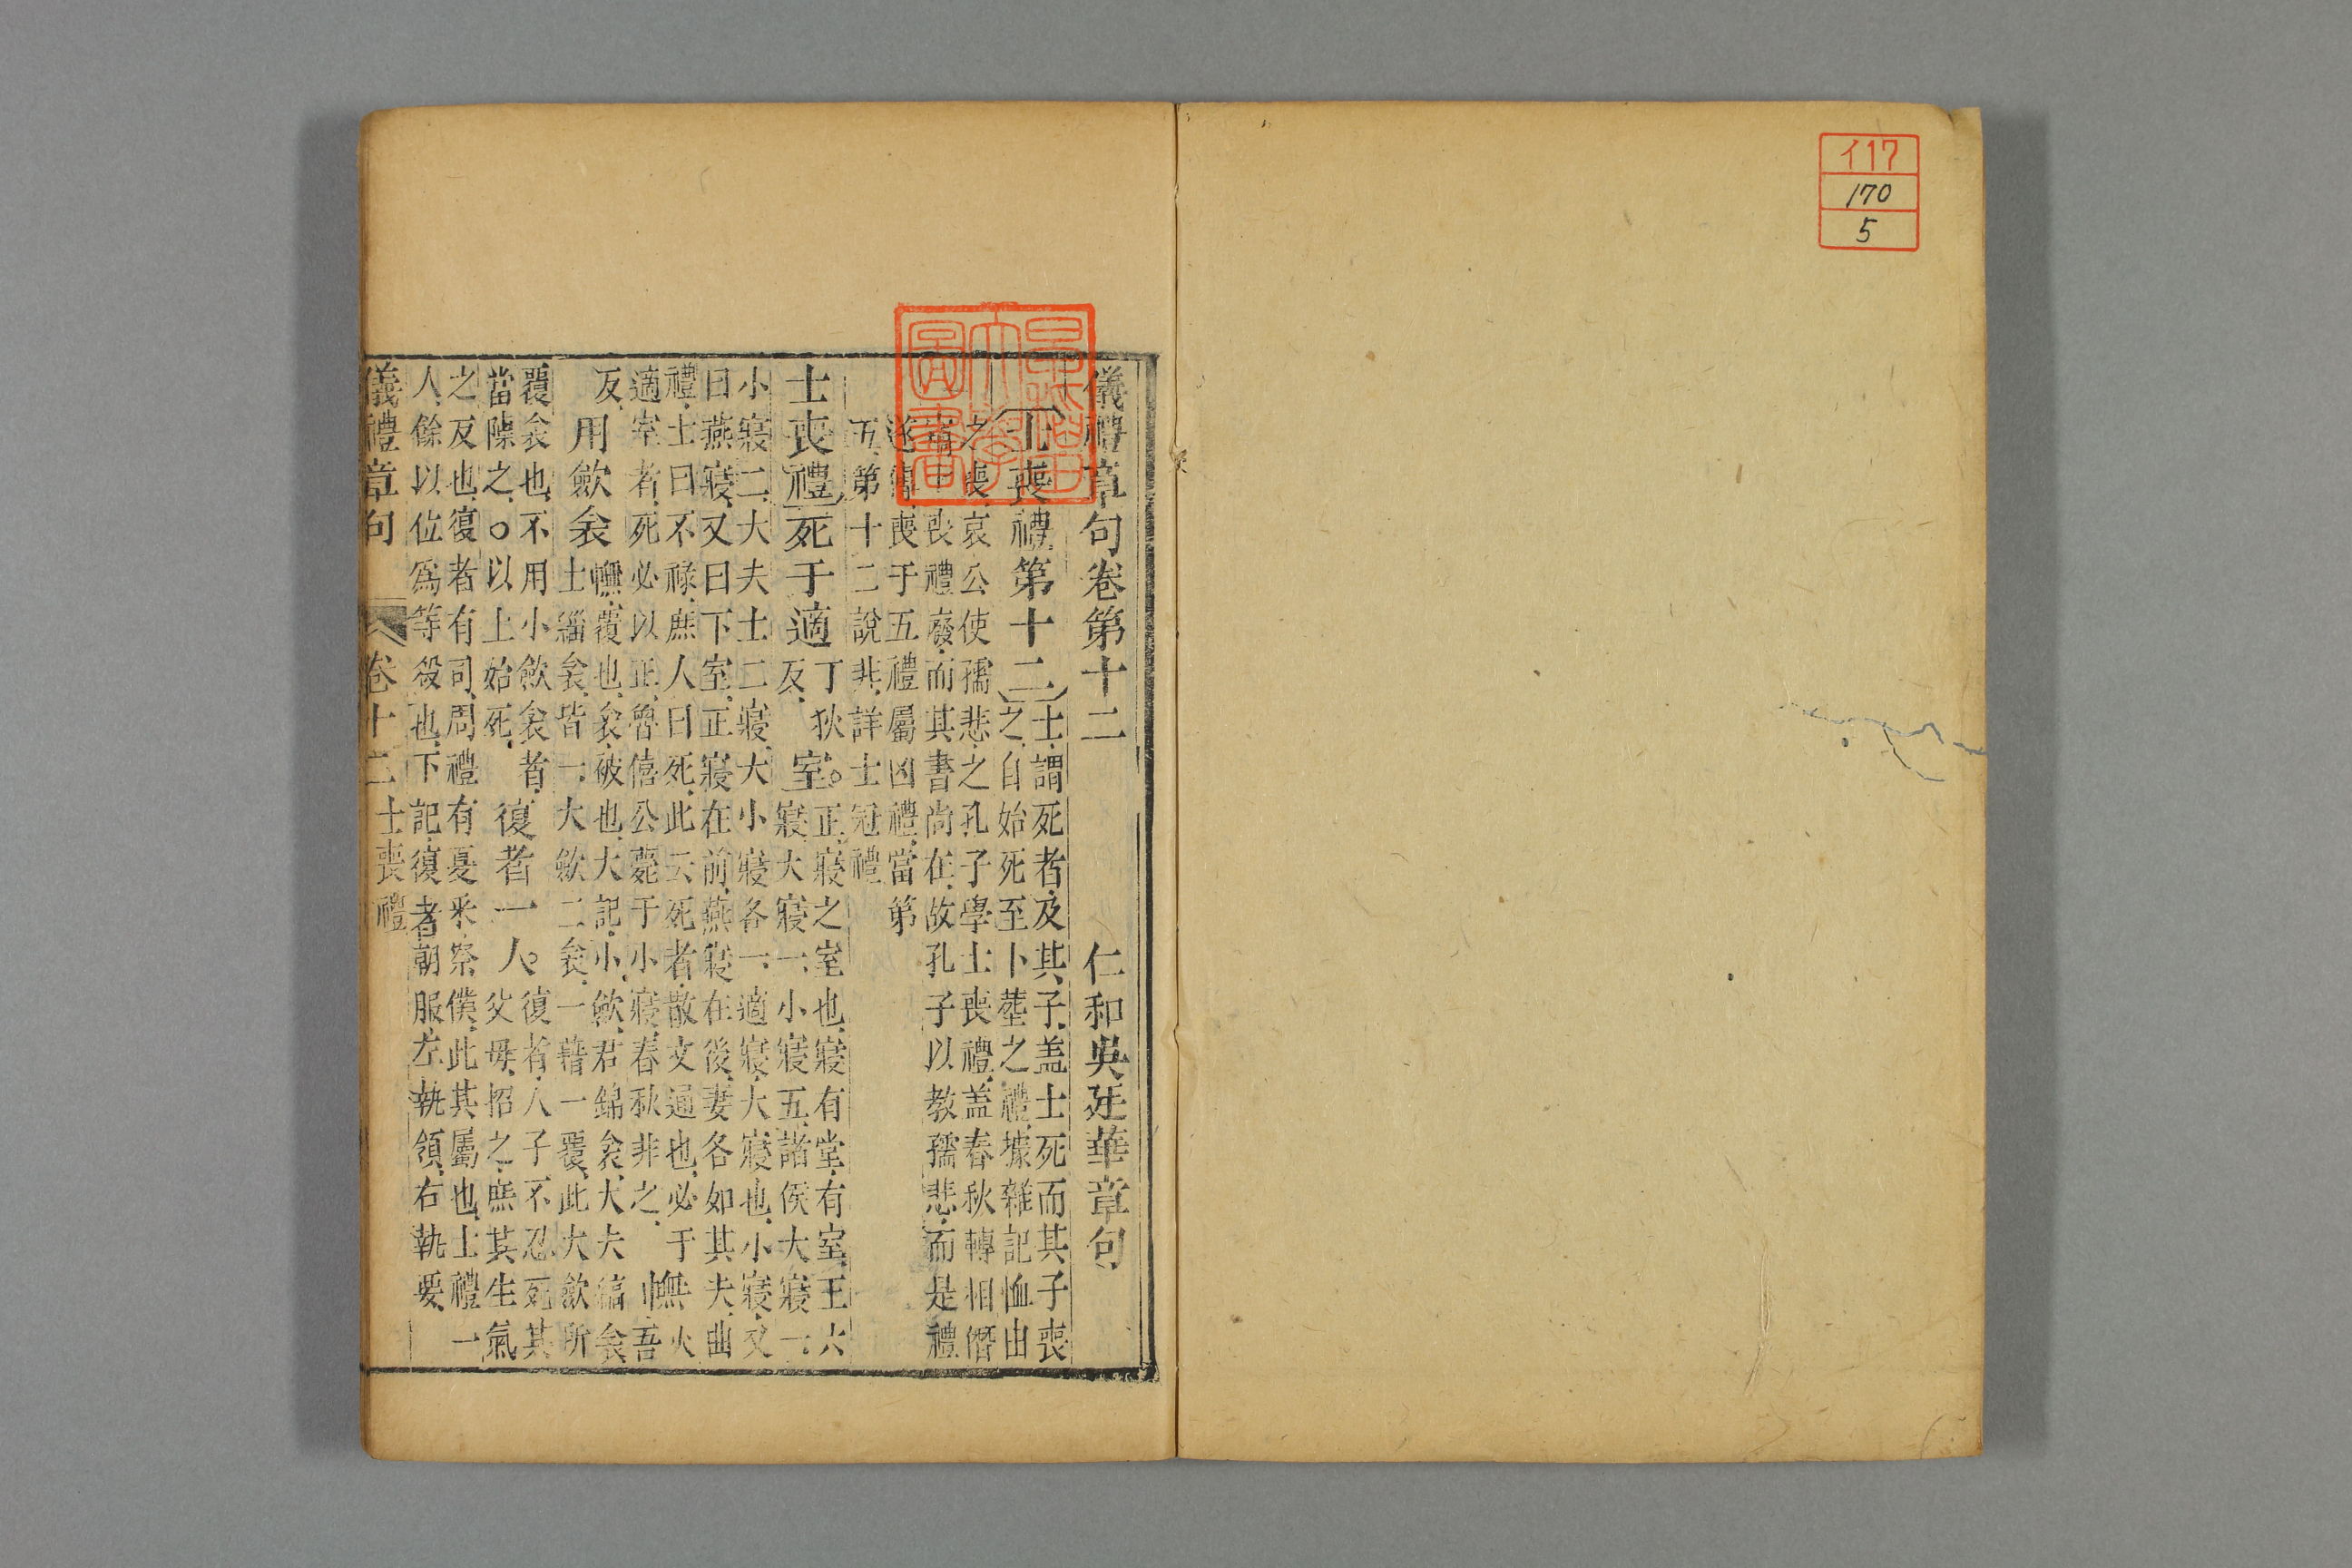 イ17
170
5
早稲田大學圖書
儀禮章句卷第十二　仁和吳廷華章句
士喪禮第十二
士、謂死者、及其子、盖士死而其子喪
之、自始死至卜塟之禮、據雜記恤由
之喪、哀公使孺悲之孔子學士喪禮、盖春秋轉相僭
士喪禮廢、而其書尚在、故孔子以教孺悲、而是禮
遂書、喪于五禮屬凶禮、當第
五、第十二說非、詳士冠禮
士喪禮死于適丁狄反、室。
正寢之室也、寢有堂、有室、王六
寢、大寢一、小寢五、諸侯大寢一、
小寢二、大夫士二寢、大小寢各一、適寢、大寢也、小寢、又
曰燕寢、又曰下室、正寢在前、燕寢在後、妻各如其夫、曲
禮、士曰不祿、庶人曰死、此云死者、散文通也、必于
適室者、死必以正、魯僖公薨于小寢、春秋非之、
幠火吾反、用歛衾
幠、覆也、衾、被也、大記、小歛、君錦衾、大夫縞衾、
士緇衾、皆一、大歛二衾、一藉一覆、此大歛所
覆衾也、不用小歛衾者、
當陳之、○以上始死、
復者一人。
復者、人子不忍死其
父母、招之、庶其生氣
之反也、復者有司、周禮有夏采、祭僕、此其屬也、士禮一
人、餘以位爲等殺也、下記、復者朝服、左執領、右執要、
儀禮章句　卷十二　士喪禮